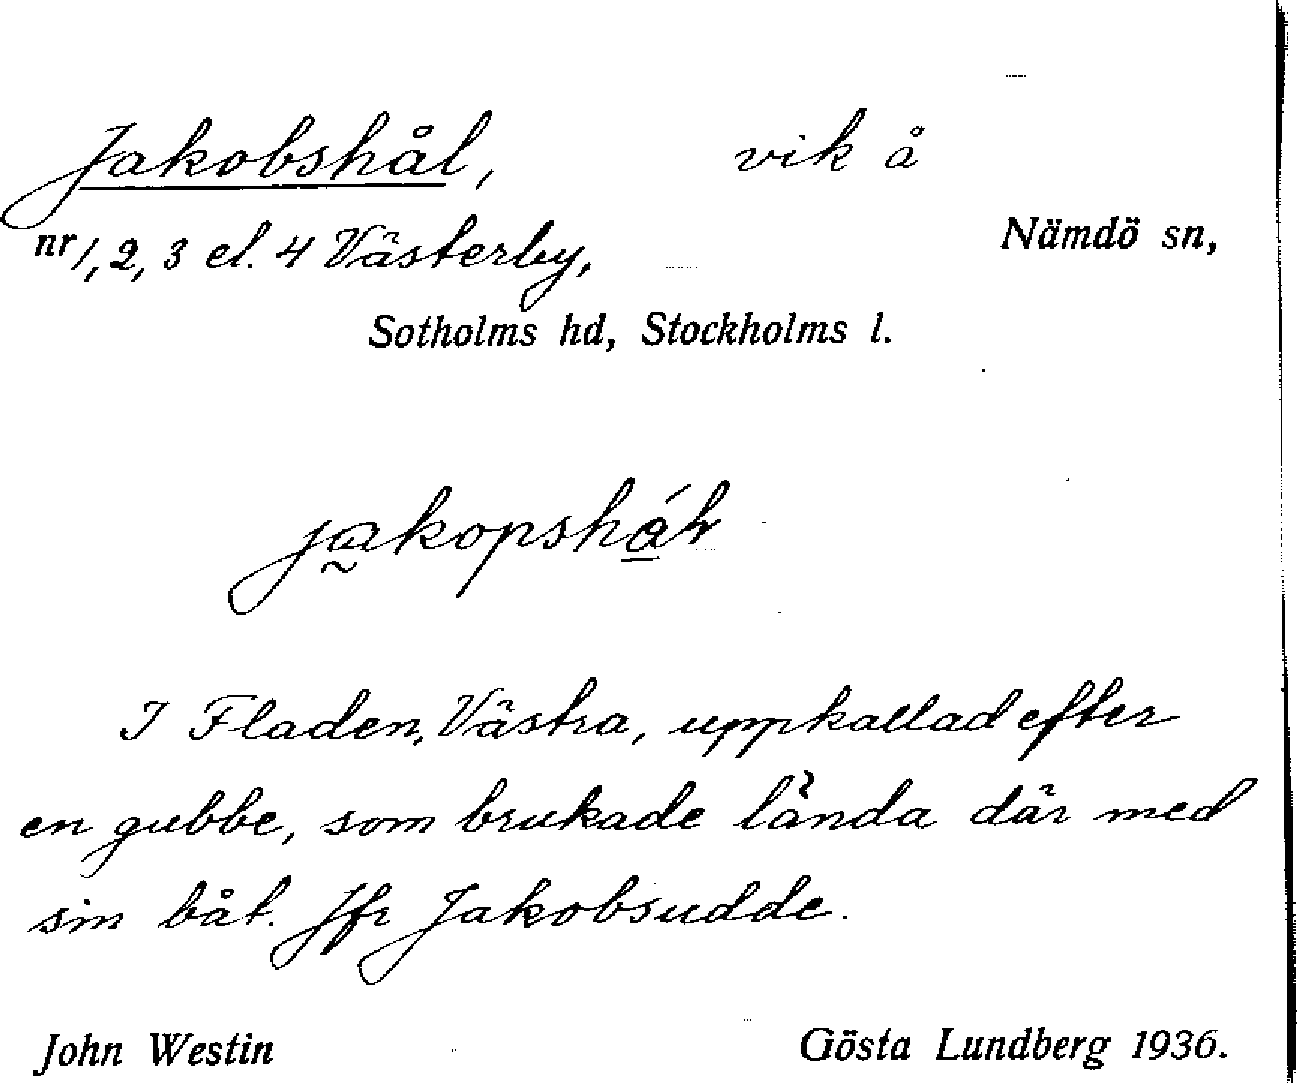 Jakobshål, vik å
nr 1, 2, 3 el. 4 Västerby, Nämdö sn,
Sotholms hd, Stockholms l.
I Fladen, Västra, uppkallad efter
en gubbe, som brukade lända där med
sin båt. Jfr Jakobsudde.
John Westin Gösta Lundberg 1936.